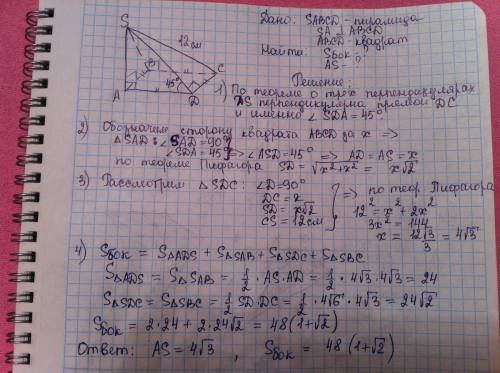 S
12 см
B
C
A
45°
D
Дано: SABCD - пирамида
SA ⊥ ABCD
ABCD - квадрат
Найти: Sбок = ?
AS = ?
Решение:
1) По теореме о трёх перпендикулярах
AS перпендикулярна прямой DC
и именно ∠ SDA = 45°
2) Обозначим сторону квадрата ABCD за x =>
△SAD: ∠SAD = 90°
∠SDA = 45° } => ∠ASD = 45° => AD = AS = x
по теореме Пифагора SD = √(x² + x²) = x√2
3) Рассмотрим △SDC: ∠D = 90°
DC = x
SD = x√2
CS = 12 см } => по теор Пифагора
12² = x² + 2x²
3x² = 144
x = 12√3/3 = 4√3
4) Sбок = S△ADS + S△SAB + S△SDC + S△SBC
S△ADS = S△SAB = 1/2 · AS · AD = 1/2 · 4√3 · 4√3 = 24
S△SDC = S△SBC = 1/2 SD · DC = 1/2 · 4√6 · 4√3 = 24√2
Sбок = 2 · 24 + 2 · 24√2 = 48(1+√2)
Ответ: AS = 4√3 , Sбок = 48(1+√2)